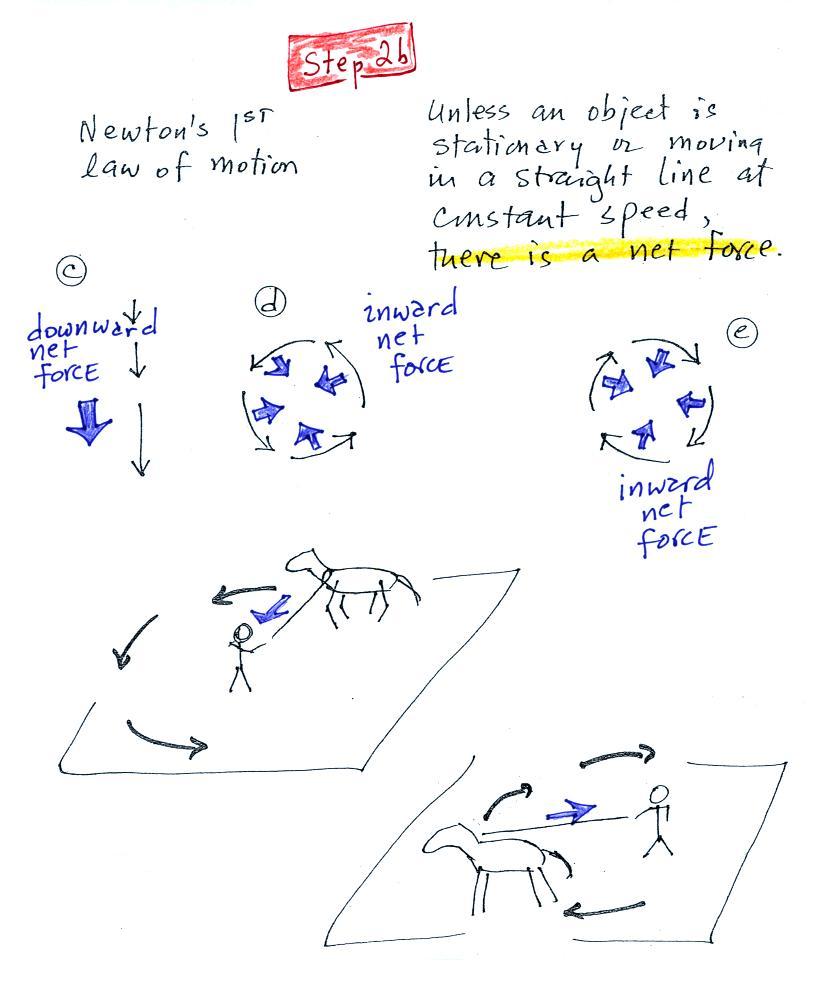 Step 2b
Newton's 1ST
law of motion
Unless an object is
stationary or moving
in a straight line at
constant speed,
there is a net force.
c
downward
net
force
d
inward
net
force
e
inward
net
force